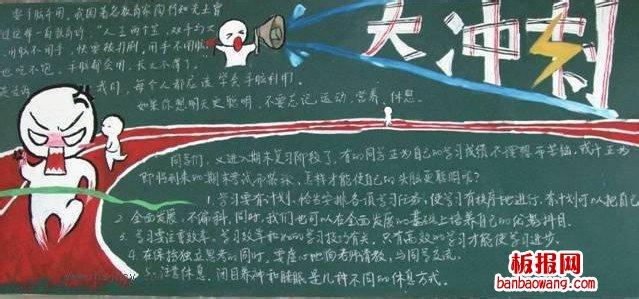 大冲刺
要手脑并用，我国著名教育家陶行知先生曾
过这样一首歌诀："人生两个宝，双手与大
用脑不用手，快要被打倒，用手不用脑，
也吃不饱。手脑都会用，
我们，每个人都应该学会手脑并用。
如果你想明天更聪明，不要忘记运动、营养、休息。
同学们，又进入期末复习阶段了，有的同学正为自己的学习成绩不理想而苦恼，或许正为
即将到来的期末考试而紧张，怎样才能使自己的头脑更聪明呢？
1. 学习要有计划，恰当安排各项学习任务，使学习有秩序地进行，有计划可以把自己
2. 全面发展，不偏科，同时，我们也可以在全面发展的基础上培养自己的优势科目。
3. 学习要注重效率，学习效率和的学习技巧有关，只有高效的学习才能使学习进步。
4. 在保持独立思考的同时，要虚心地向老师请教，与同学交流。
5. 注意休息，闭目养神和睡眠是几种不同的休息方式。
板报网
banbaowang.com